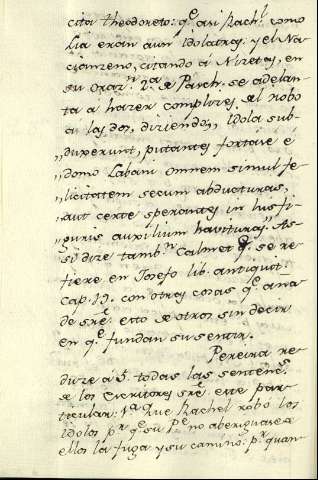 cita Theodoreto: q.e asi Rach.l como
Lia eran aun idolatras. y el Na
cianzeno, citando à Nizetas, en
su Orar.n 2.a de Pasch. se adelan
ta à hazer complizes del robo
a las dos, diziendo, Idola sub-
„duxerunt, putantes fortasè è
„domo Labani omnem simul fe
„licitatem secum abducturas,
„aut certe sperantes in lus fi
„guris auxilium havituras" As-
si dize tamb.n Calmet q.e se re-
fiere en Josefo lib. antiquit.
cap. 19. con otras cosas q.e aña-
de sre. esto de otros, sin decir
en q.e fundan su sentir.
Pereira re
duze à 5. todas las sentenc.s
de los Escritores sre. este par-
ticular: 1.a que Rachel robó los
idolos p.r q.e su P.e no aberiguase a
ellos la fuga y su camino: p.r quan